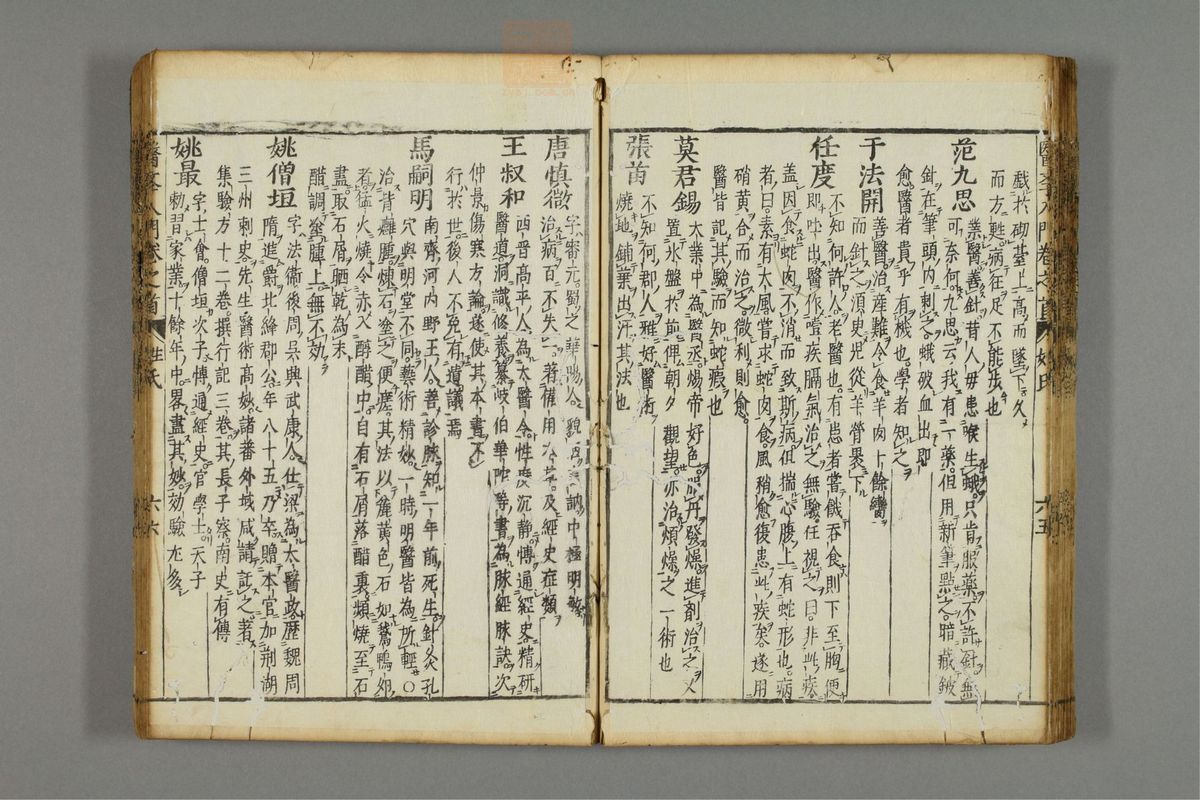 戲於砌臺上高而墜下久
而方甦病在足不能步也
范九思
業醫善針昔人毋患喉生蛾只肯服藥不許針無
可奈何九思云我有一藥但用新筆點之暗藏鈹
針在筆頭內刺之蛾破血出即
愈醫者貴乎有機也學者知之
于法開
善醫治產難令食羊肉十餘臠
而針之須臾兒從羊膋裹下
任度
不知何許人老醫也有患者嘗饑吞食則下至胸便
即吐出醫作噎疾膈氣治之無驗任視之曰非此疾
盖因食蛇肉不消而致斯病但揣心腹上有蛇形也病
者曰素有大風嘗求蛇肉食風稍愈復患此疾矣遂用
硝黃合而治之微利則愈
醫皆記其驗而知蛇瘕也
莫君錫
大業中為醫丞煬帝好色服丹發燥進劑治之又
置氷盤於前俾朝夕觀望亦治煩燥之一術也
張苗
不知何郡人雅好醫術
燒地鋪葉出汗其法也
醫學入門卷之首 姓氏 六五
唐慎微
字審元蜀之華陽人貌寢言訥中極明敏
治病百不失一著備用本草及經史症類
王叔和
西晋高平人為太醫令性度沉静博通經史精研
醫道洞識修養纂岐伯華陀等書為脉經脉訣次
仲景傷寒方論遂使其本書不
行於世後人不免有遺議焉
馬嗣明
南齊河內野王人善診脉知一年前死生針灸孔
穴與明堂不同藝術精妙一時明醫皆為所輕〇
治背癰腫煉石塗之便瘥其法以麄黃色石如鵝鴨卵
者猛火燒令赤入醇醋中自有石屑落醋裏頻燒至石
盡取石屑晒乾為末
醋調塗腫上無不効
姚僧垣
字法衛後周吳興武康人仕梁為太醫政歷魏周
隋進爵北絳郡公年八十五乃卒贈本官加荆湖
三州刺史先生醫術高妙諸番外域咸請託之著
集驗方十二卷撰行記三卷其長子察南史有傳
姚最
字士會僧垣次子博通經史官學士天子
勑習家業十餘年中畧盡其妙効驗尤多
醫學入門卷之首 姓氏 六六